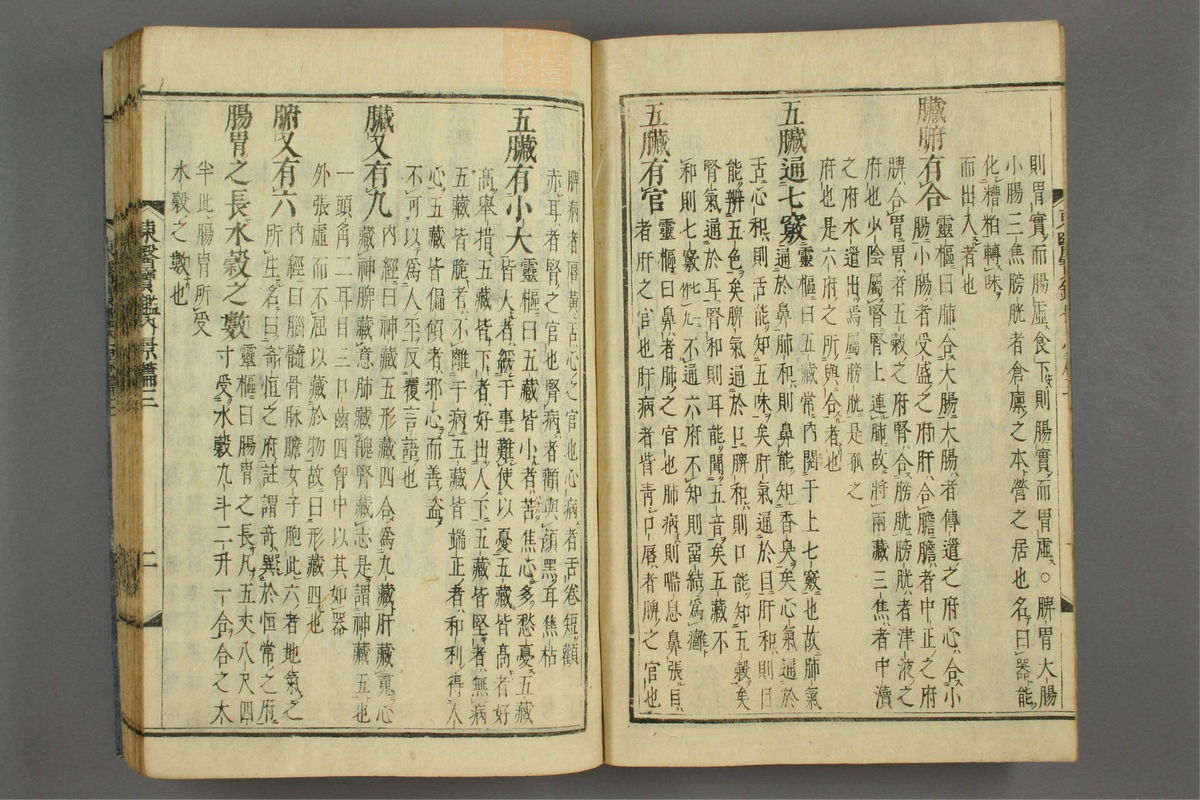 則胃實而腸虛食下則腸實而胃虛○脾胃大腸
小腸三焦膀胱者倉廩之本營之居也名曰器能
化糟粕轉味
而出入者也
臟腑有合
靈樞曰肺合大腸大腸者傳道之府心合小
腸小腸者受盛之府肝合膽膽者中正之府
脾合胃胃者五穀之府腎合膀胱膀胱者津液之
府也少陰屬腎腎上連肺故將兩藏三焦者中瀆
之府水道出焉屬膀胱是孤之
府也是六府之所與合者也
五臟通七竅
靈樞曰五藏常內閱于上七竅也故肺氣
通於鼻肺和則鼻能知香臭矣心氣通於
舌心和則舌能知五味矣肝氣通於目肝和則目
能辨五色矣脾氣通於口脾和則口能知五穀矣
腎氣通於耳腎和則耳能聞五音矣五藏不
和則七竅不通六府不和則留結爲癰
五臟有官
靈樞曰鼻者肺之官也肺病則喘息鼻張目
者肝之官也肝病者眥靑口唇者脾之官也
脾病者唇黃舌心之官也心病者舌卷短顴
赤耳者腎之官也腎病者顴與顔黑耳焦枯
五臟有小大
靈樞曰五藏皆小者苦焦心多愁憂五藏
皆大者緩于事難使以憂五藏皆高者好
高舉措五藏皆下者好出人下五藏皆堅者無病
五藏皆脆者不離于病五藏皆端正者和利得人
心五藏皆偏傾者邪心而善盜
不可以爲人平反覆言語也
臟又有九
內經曰神藏五形藏四合爲九藏肝藏魂心
藏神脾藏意肺藏魄腎藏志是謂神藏五也
一頭角二耳目三口齒四胷中以其如器
外張虛而不屈以藏於物故曰形藏四也
腑又有六
內經曰腦髓骨脉膽女子胞此六者地氣之
所生名曰奇恒之府註謂奇異於恒常之府
腸胃之長水穀之數
靈樞曰腸胃之長凡五丈八尺四
寸受水穀九斗二升一合合之大
半此腸胃所受
水穀之數也
東醫寶鑑內景篇三
二